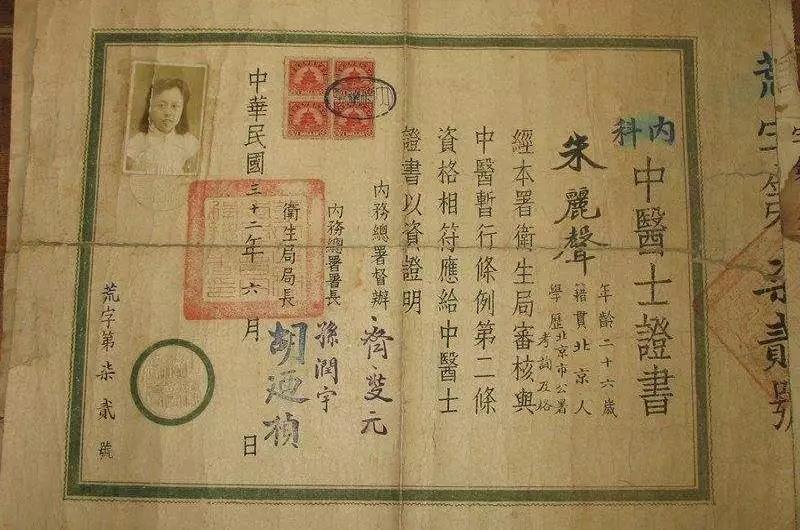 荒字第柒貳號
內科
中醫士證書
朱麗聲
年齡二十六歲
籍貫北京人
學歷北京市公署
考詢及格
經本署衛生局審核與
中醫暫行條例第二條
資格相符應給中醫士
證書以資證明
內務總署督辦 齊燮元
內務總署署長 孫潤宇
衛生局局長 胡廼楨
中華民國三十二年六月 日
荒字第柒貳號